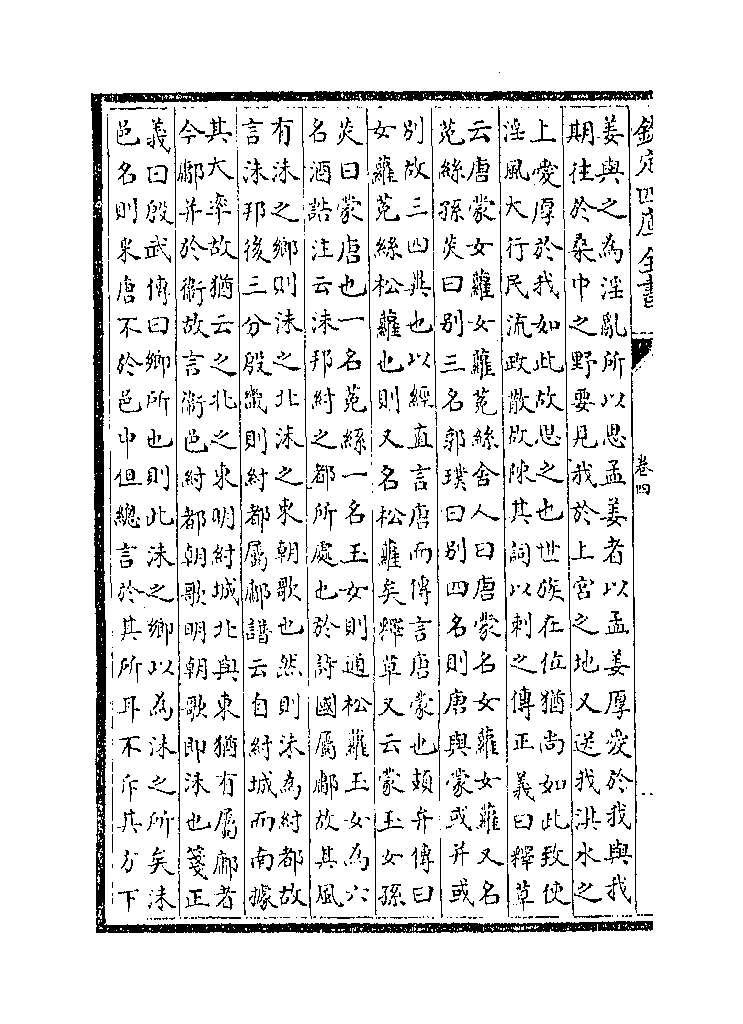 欽定四庫全書
卷四
姜與之為淫亂所以思孟姜者以孟姜厚愛於我與我
期往於桑中之野要見我於上宮之地又送我淇水之
上愛厚於我如此故思之也世族在位猶尚如此致使
淫風大行民流政散故陳其詞以刺之傳正義曰釋草
云唐蒙女蘿女蘿菟絲舍人曰唐蒙名女蘿女蘿又名
菟絲孫炎曰别三名郭璞曰别四名則唐與蒙或并或
别故三四異也以經直言唐而傳言唐蒙也頍弁傳曰
女蘿菟絲松蘿也則又名松蘿矣釋草又云蒙玉女孫
炎曰蒙唐也一名菟絲一名玉女則通松蘿玉女為六
名酒誥注云沬邦紂之都所處也於詩國屬鄘故其風
有沬之鄉則沬之北沬之東朝歌也然則沬為紂都故
言沬邦後三分殷畿則紂都屬鄘譜云自紂城而南據
其大率故猶云之北之東明紂城北與東猶有屬鄘者
今鄘并於衛故言衛邑紂都朝歌明朝歌即沬也箋正
義曰殷武傳曰鄉所也則此沬之鄉以為沬之所矣沬
邑名則采唐不於邑中但總言於其所耳不斥其方下